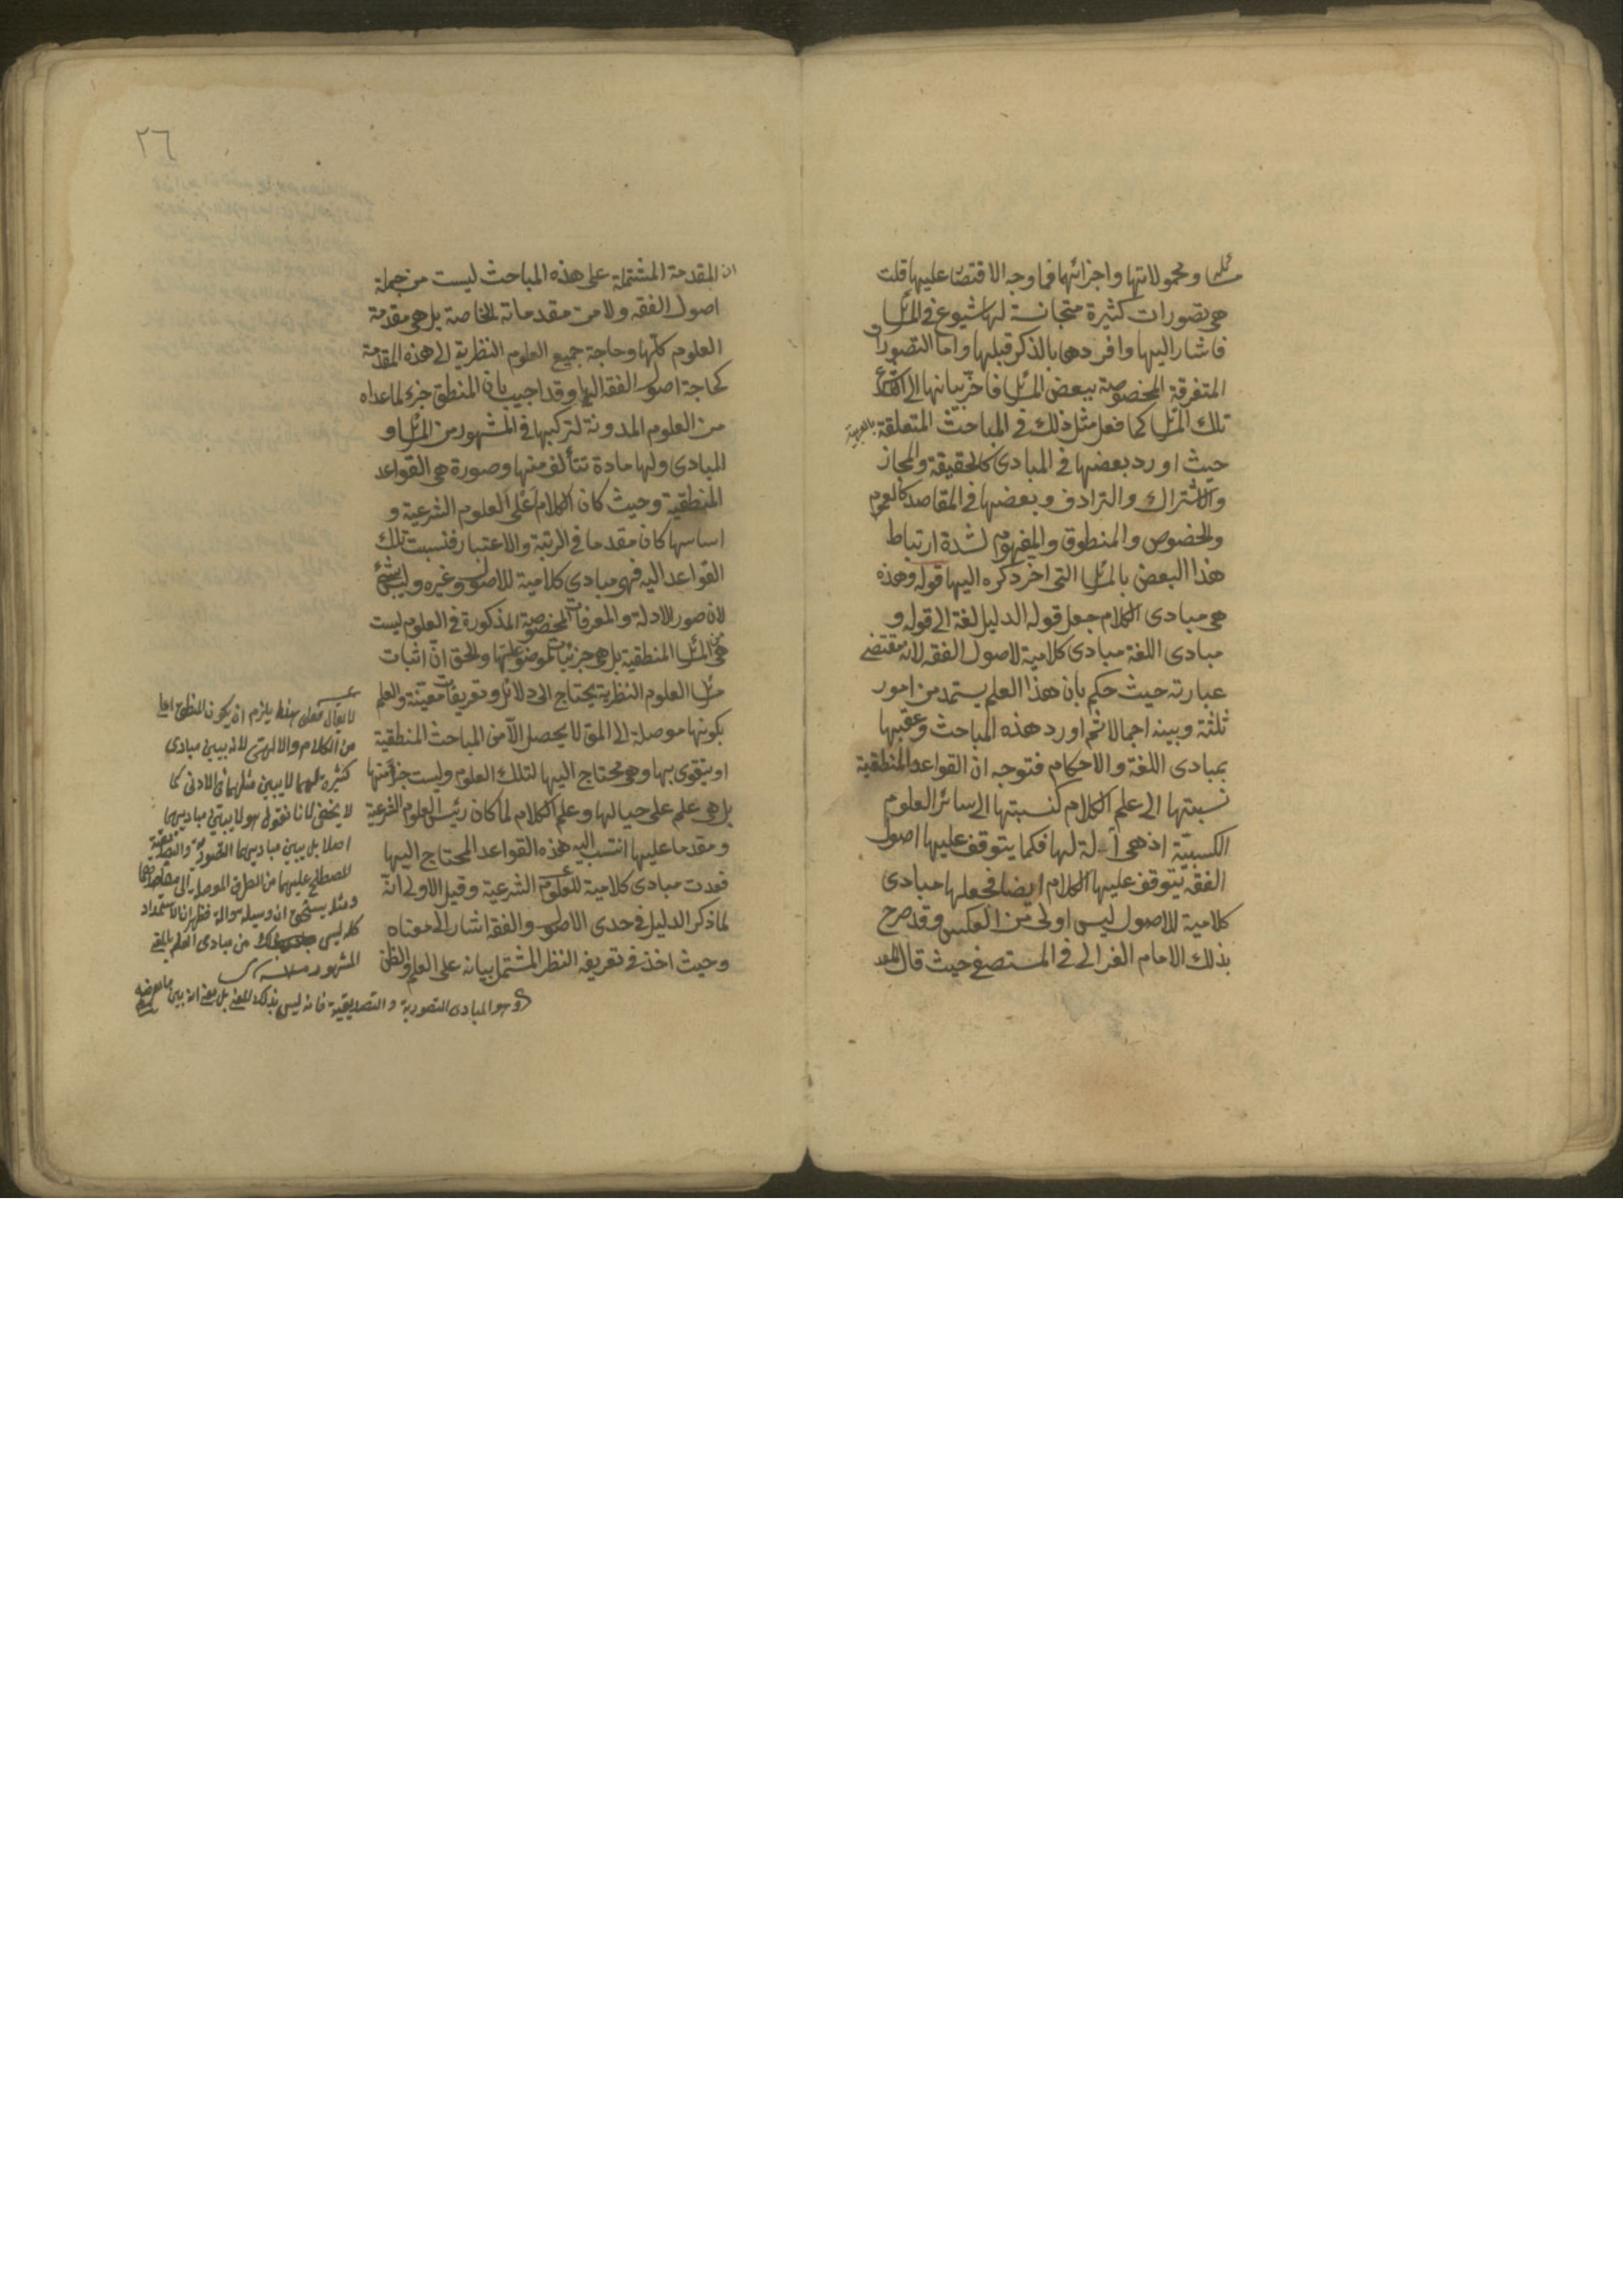 مسائله ومحمولاتها واجزائها فما وجه الاقتصار عليها قلت
هى تصورات كثيرة متجانسة لها شيوع فى المسائل
فاشار اليها وافردها بالذكر قبلها واما التصورات
المتفرقة المخصوصة ببعض المسائل فاخر بيانها الى
تلك المسائل كما فعل مثل ذلك فى المباحث المتعلقة بالعربية
حيث اورد بعضها فى المبادى كالحقيقة والمجاز
والاشتراك والترادف وبعضها فى المقاصد كالعموم
والخصوص والمنطوق والمفهوم لشدة ارتباط
هذا البعض بالمسائل التى اخر ذكره اليها قوله وهذه
هى مبادى الكلام جعل قوله الدليل لغة الى قوله و
مبادى اللغة مبادى كلامية لاصول الفقه لانه مقتضى
عبارته حيث حكم بان هذا العلم يستمد من امور
ثلثة وبينه اجمالا ثم اورد هذه المباحث وعقبها
بمبادى اللغة والاحكام فتوجه ان القواعد المنطقية
نسبتها الى علم الكلام كنسبتها الى سائر العلوم
الكسبية اذ هى آلة لها فكما يتوقف عليها اصول
الفقه يتوقف عليها الكلام ايضا فجعلها مبادى
كلامية للاصول ليس اولى من العكس وقد صرح
بذلك الامام الغزالى فى المستصفى حيث قال
٢٦
ان المقدمة المشتملة على هذه المباحث ليست من جملة
اصول الفقه ولا من مقدماته الخاصة بل هى مقدمة
العلوم كلها وحاجة جميع العلوم النظرية الى هذه المقدمة
كحاجة اصول الفقه اليها وقد اجيب بان المنطق جزء لما عداه
من العلوم المدونة لتركبها فى المشهور من المسائل و
المبادى ولها مادة تتألف منها وصورة هى القواعد
المنطقية وحيث كان الكلام اعلى العلوم الشرعية و
اساسها كان مقدما فى الرتبة والاعتبار فنسبت تلك
القواعد اليه فهى مبادى كلامية للاصول وغيره وليس بشئ
لان صور الادلة والمعرفات المخصوصة المذكورة فى العلوم ليست
هى من المسائل المنطقية بل هى جزئيات لموضوعاتها والحق ان اثبات
مسائل العلوم النظرية يحتاج الى دلائل وتعريفات معينة والعلم
بكونها موصلة الى المق لا يحصل الا من المباحث المنطقية
او يتقوى بها وهى محتاج اليها لتلك العلوم وليست جزأ منها
بل هى علم على حيالها وعلم الكلام لما كان رئيس العلوم الشرعية
ومقدما عليها انتسب اليه هذه القواعد المحتاج اليها
فعدت مبادى كلامية للعلوم الشرعية وقيل الاولى انه
لما ذكر الدليل فى حدى الاصول والفقه اشار الى معناه
وحيث اخذ فى تعريفه النظر المشتمل بيانه على العلم والظن
لا يقال فعلى هذا يلزم ان يكون المنطق اعلى
من الكلام والالهى لانه يبين مبادى
كثيرة لهما لا يبين مثلها فى الادنى كما
لا يخفى لانا نقول هو لا يبين مباديهما
اصلا بل يبين مباديهما التصورية والتصديقية
المشهور
وهو المبادى التصورية والتصديقية فانه ليس بذلك المعنى بل بمعنى انه يبين